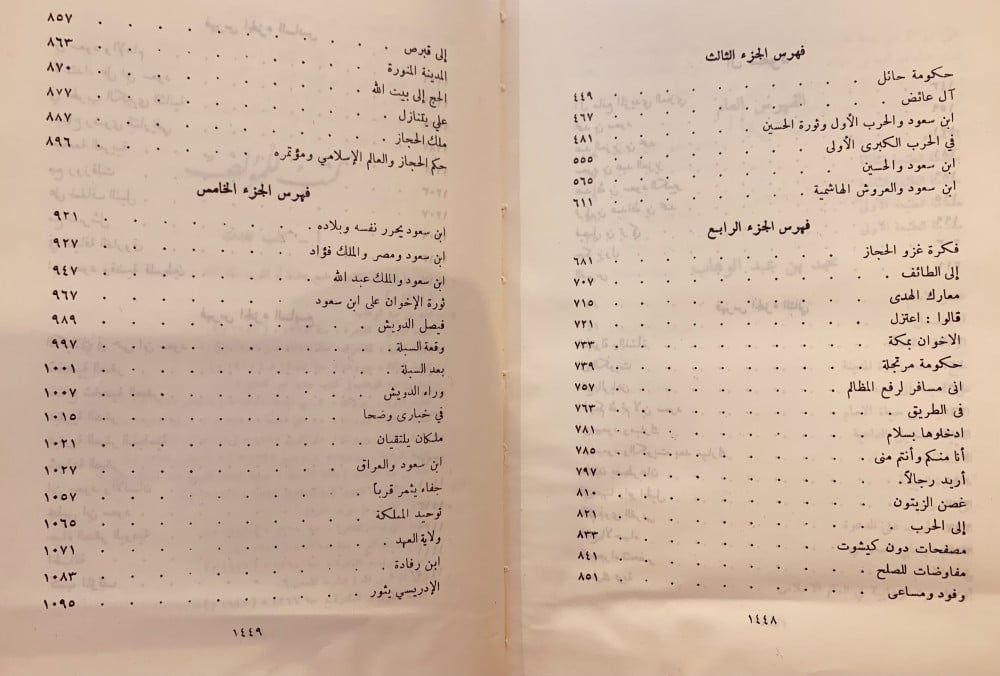 فهرس الجزء الثالث
حكومة حائل . . . . . . . . ٤٤٩
آل عائض . . . . . . . . ٤٦٧
ابن سعود والحرب الأول وثورة الحسين . . . . ٤٨١
في الحرب الكبرى الأولى . . . . . . ٥٥٥
ابن سعود والحسين . . . . . . . ٥٦٥
ابن سعود والعروش الهاشمية . . . . . ٦١١
فهرس الجزء الرابع
فكرة غزو الحجاز . . . . . . . ٦٨١
إلى الطائف . . . . . . . . ٧٠٧
معارك الهدى . . . . . . . . ٧١٥
قالوا : اعتزل . . . . . . . . ٧٢١
الاخوان بمكة . . . . . . . . ٧٣٣
حكومة مرتجلة . . . . . . . ٧٣٩
انى مسافر لرفع المظالم . . . . . . ٧٥٧
فى الطريق . . . . . . . . ٧٦٣
ادخلوها بسلام . . . . . . . ٧٨١
أنا منكم وأنتم منى . . . . . . . ٧٨٥
أريد رجالاً . . . . . . . . ٧٩٧
غصن الزيتون . . . . . . . ٨١٠
إلى الحرب . . . . . . . . ٨٢١
مصفحات دون كيشوت . . . . . . ٨٣٣
مفاوضات للصلح . . . . . . . ٨٤١
وفود ومساعى . . . . . . . ٨٥١
١٤٤٨
إلى قبرص . . . . . . . . ٨٥٧
المدينة المنورة . . . . . . . . ٨٦٣
الحج إلى بيت الله . . . . . . . ٨٧٠
علي يتنازل . . . . . . . . ٨٧٧
ملك الحجاز . . . . . . . . ٨٨٧
حكم الحجاز والعالم الإسلامي ومؤتمره . . . . ٨٩٦
فهرس الجزء الخامس
ابن سعود يحرر نفسه وبلاده . . . . . . ٩٢١
ابن سعود ومصر والملك فؤاد . . . . . ٩٢٧
ابن سعود والملك عبد الله . . . . . . ٩٤٧
ثورة الإخوان على ابن سعود . . . . . ٩٦٧
فيصل الدويش . . . . . . . ٩٨٩
وقعة السبلة . . . . . . . . ٩٩٧
بعد السبلة . . . . . . . . ١٠٠١
وراء الدويش . . . . . . . ١٠٠٧
في خبارى وضحا . . . . . . . ١٠١٥
ملكان يلتقيان . . . . . . . ١٠٢١
ابن سعود والعراق . . . . . . . ١٠٢٧
جفاء يثمر قرباً . . . . . . . ١٠٥٧
توحيد المملكة . . . . . . . ١٠٦٥
ولاية العهد . . . . . . . . ١٠٧١
ابن رفادة . . . . . . . . ١٠٨٣
الإدريسي يثور . . . . . . . ١٠٩٥
١٤٤٩